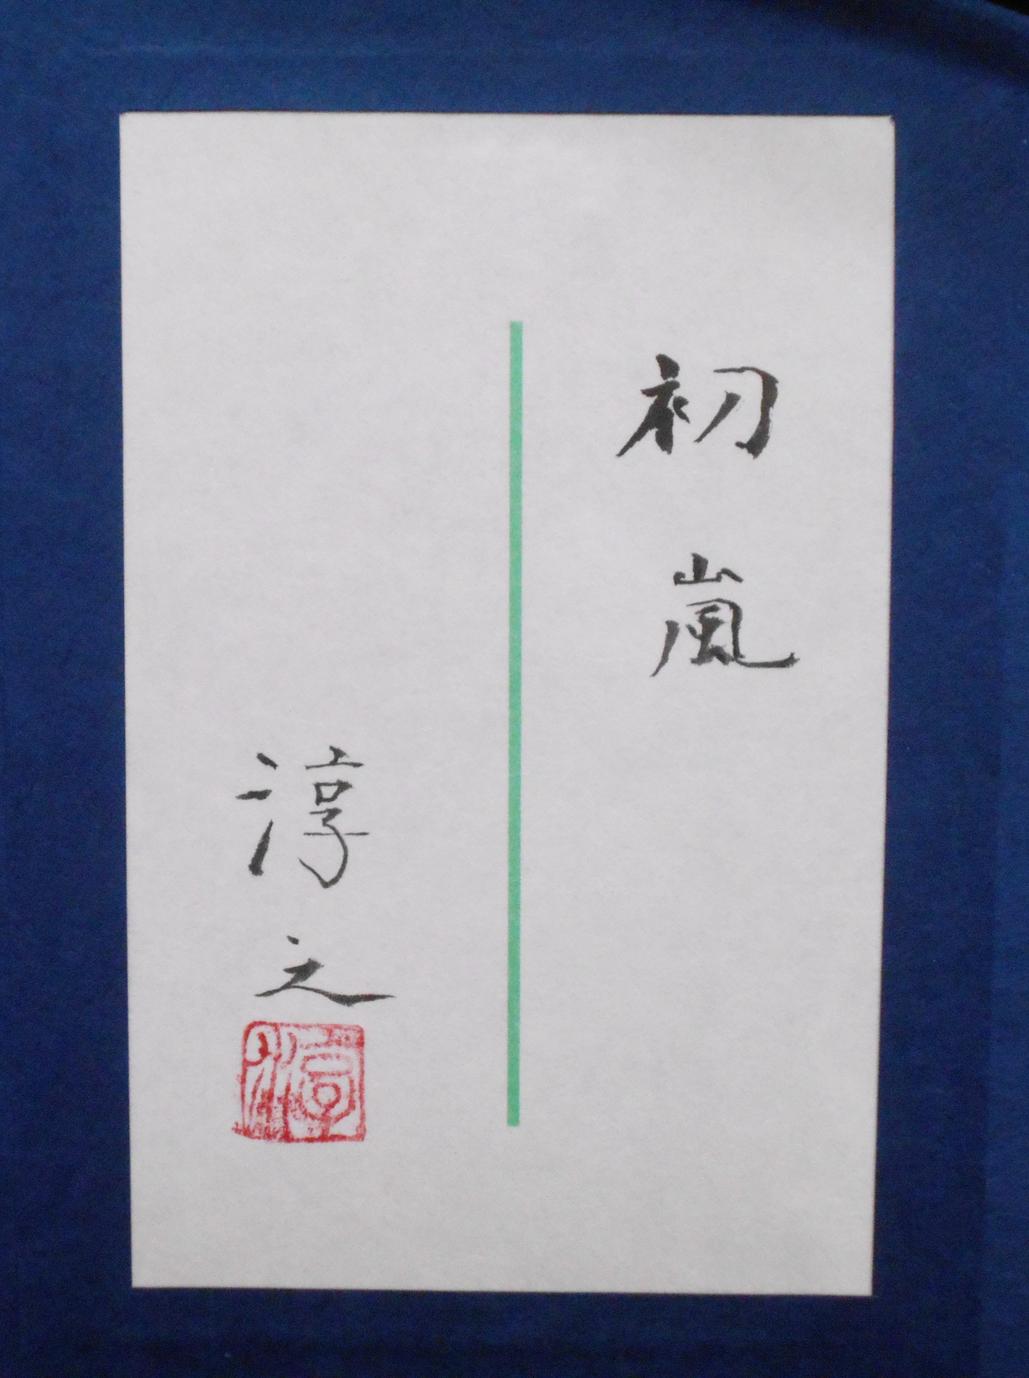 初嵐
淳之